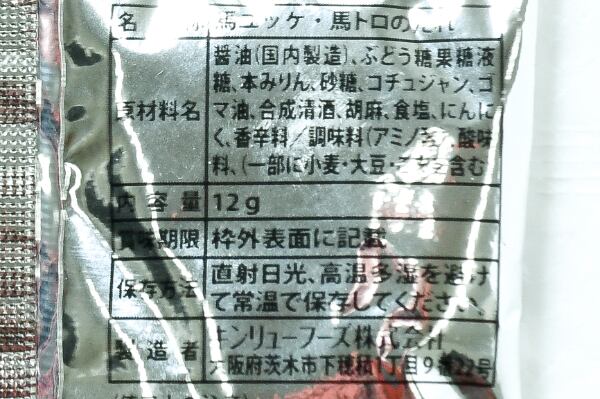 名 称 馬ユッケ・馬トロのたれ
醤油(国内製造)、ぶどう糖果糖液
糖、本みりん、砂糖、コチュジャン、ゴ
原材料名 マ油、合成清酒、胡麻、食塩、にんに
く、香辛料／調味料(アミノ酸)、酸味
料、(一部に小麦・大豆・ごまを含む
内 容 量 12g
賞味期限 枠外表面に記載
保存方法 直射日光、高温多湿を避け
て常温で保存してください。
製 造 者 キンリューフーズ株式会社
大阪府茨木市下穂積1丁目9番22号